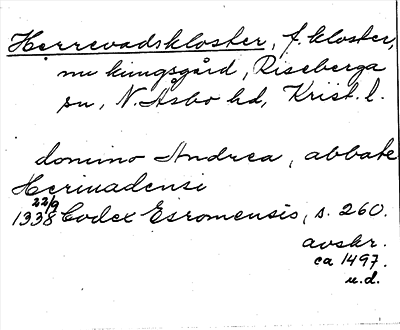 Herrevadskloster, f. kloster,
nu kungsgård, Riseberga
sn, N. Åsbo hd, Krist. l.
domino Andrea, abbate
Heriuadensi
22/9
1338 Codex Esromensis, s. 260.
avskr.
ca 1497.
u.d.